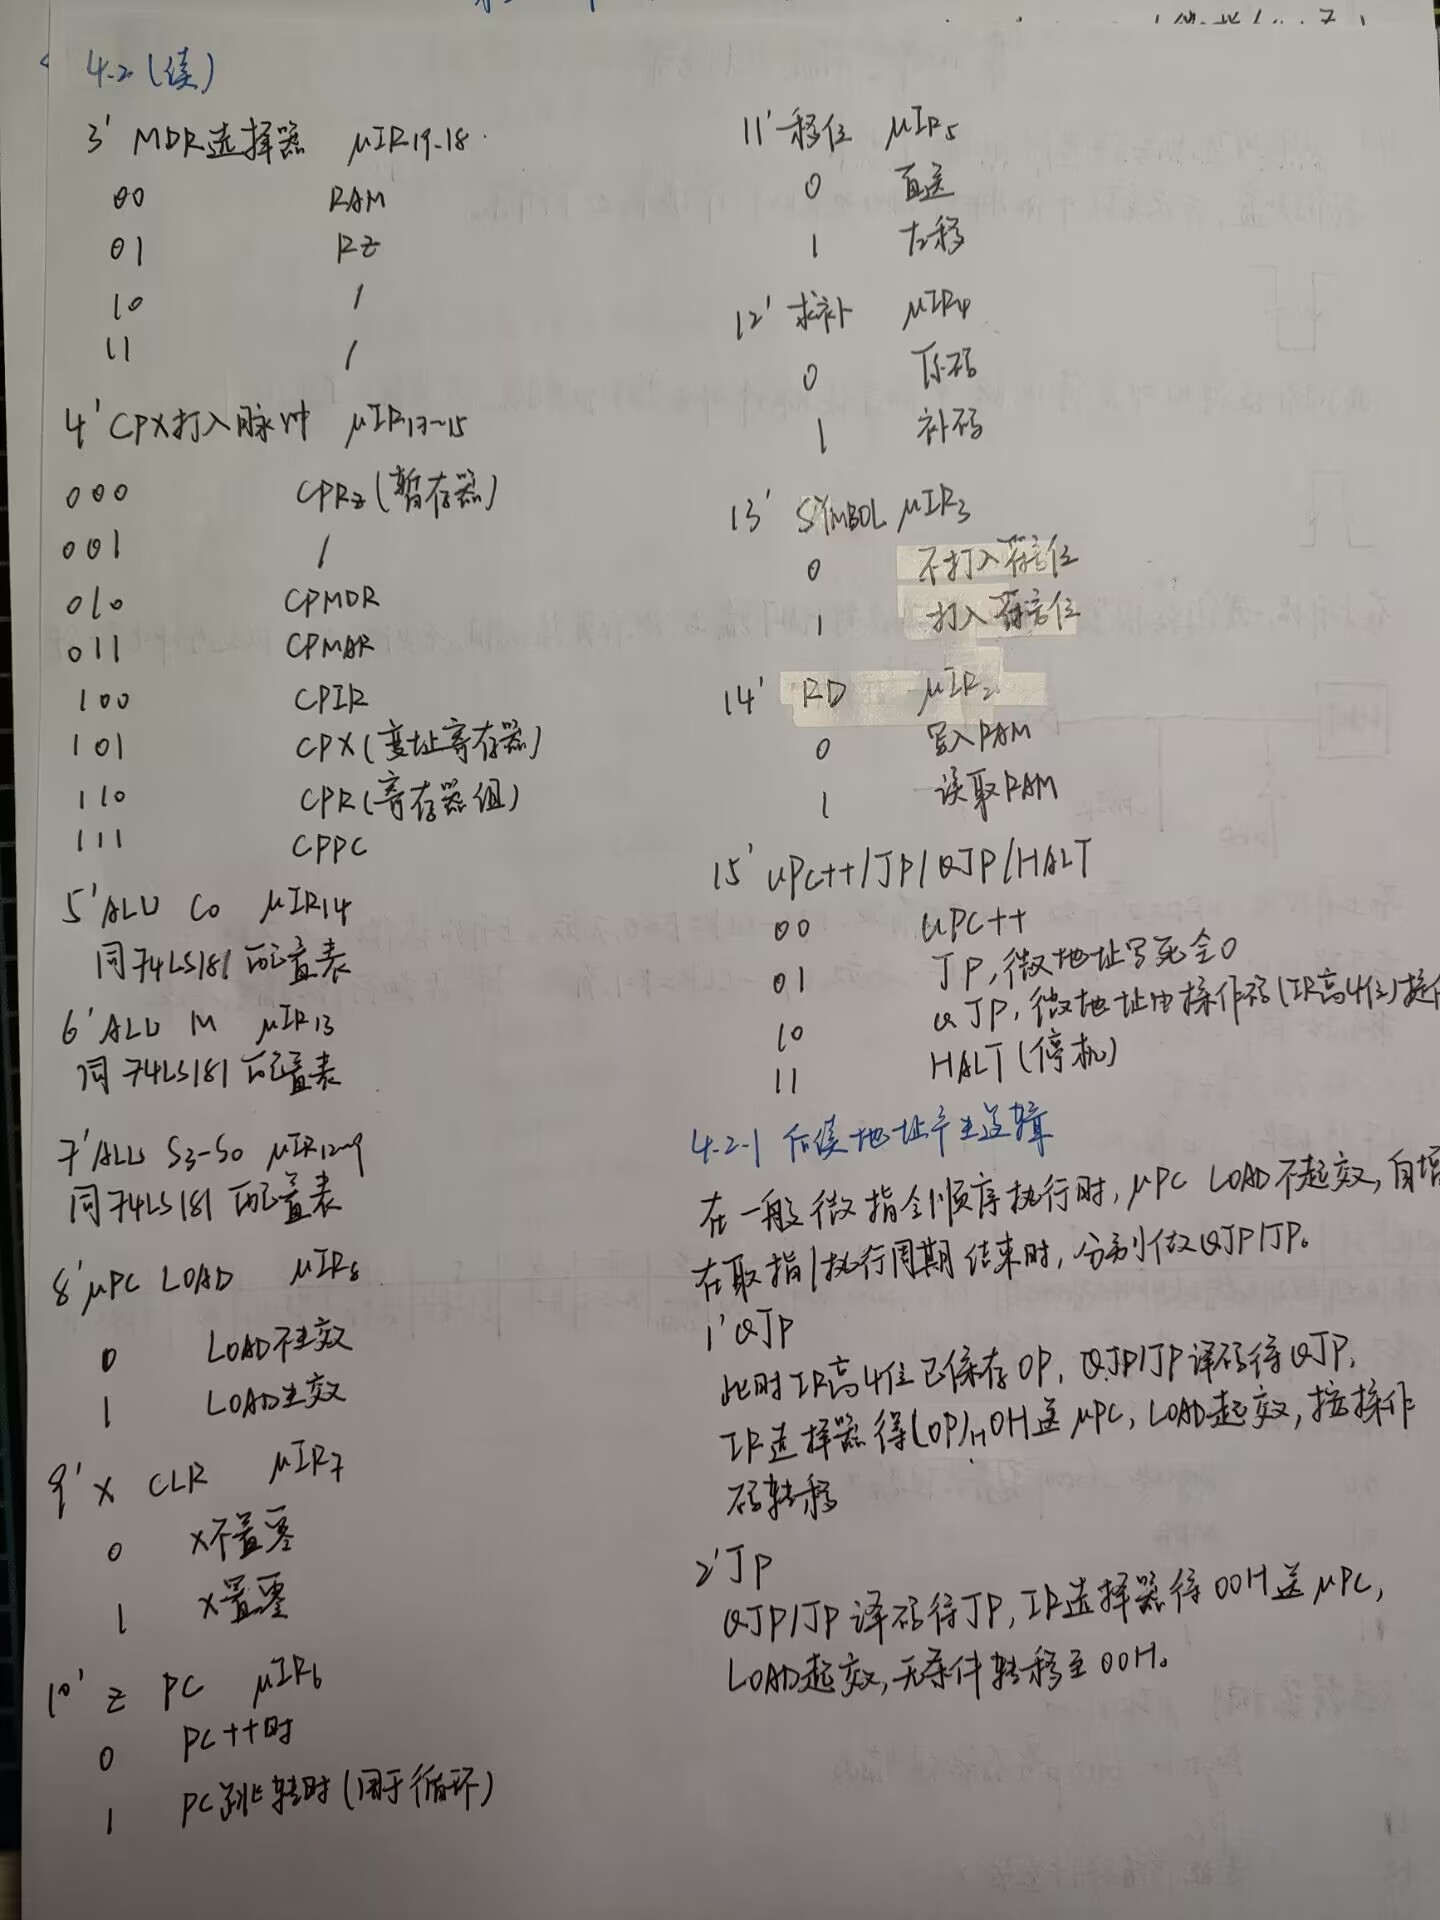 4.2(续)
3' MDR选择器 μIR19-18
00 RAM
01 RZ
10 /
11 /
4' CPX打入脉冲 μIR17~15
000 CPRZ(暂存器)
001 /
010 CPMDR
011 CPMAR
100 CPIR
101 CPX(变址寄存器)
110 CPR(寄存器组)
111 CPPC
5' ALU C0 μIR14
同74LS181配置表
6' ALU M μIR13
同74LS181配置表
7' ALU S3-S0 μIR12~9
同74LS181配置表
8' μPC LOAD μIR8
0 LOAD不生效
1 LOAD生效
9' X CLR μIR7
0 X不置零
1 X置零
10' Z PC μIR6
0 PC++时
1 PC跳转时(用于循环)
11' 移位 μIR5
0 直送
1 左移
12' 求补 μIR4
0 原码
1 补码
13' SYMBOL μIR3
0 不打入符号位
1 打入符号位
14' RD μIR2
0 写入RAM
1 读取RAM
15' μPC++/JP/QJP/HALT
00 μPC++
01 JP,微地址写死全0
10 QJP,微地址由操作码(IR高4位)提
11 HALT(停机)
4.2-1 后续地址产生逻辑
在一般微指令顺序执行时,μPC LOAD不起效,自增
在取指/执行周期结束时,分别做QJP/JP。
1' QJP
此时IR高4位已保存OP,QJP/JP译码得QJP,
IR选择器得(OP)H0H送μPC,LOAD起效,按操作
码转移
2' JP
QJP/JP译码得JP,IR选择器得00H送μPC,
LOAD起效,无条件转移至00H。